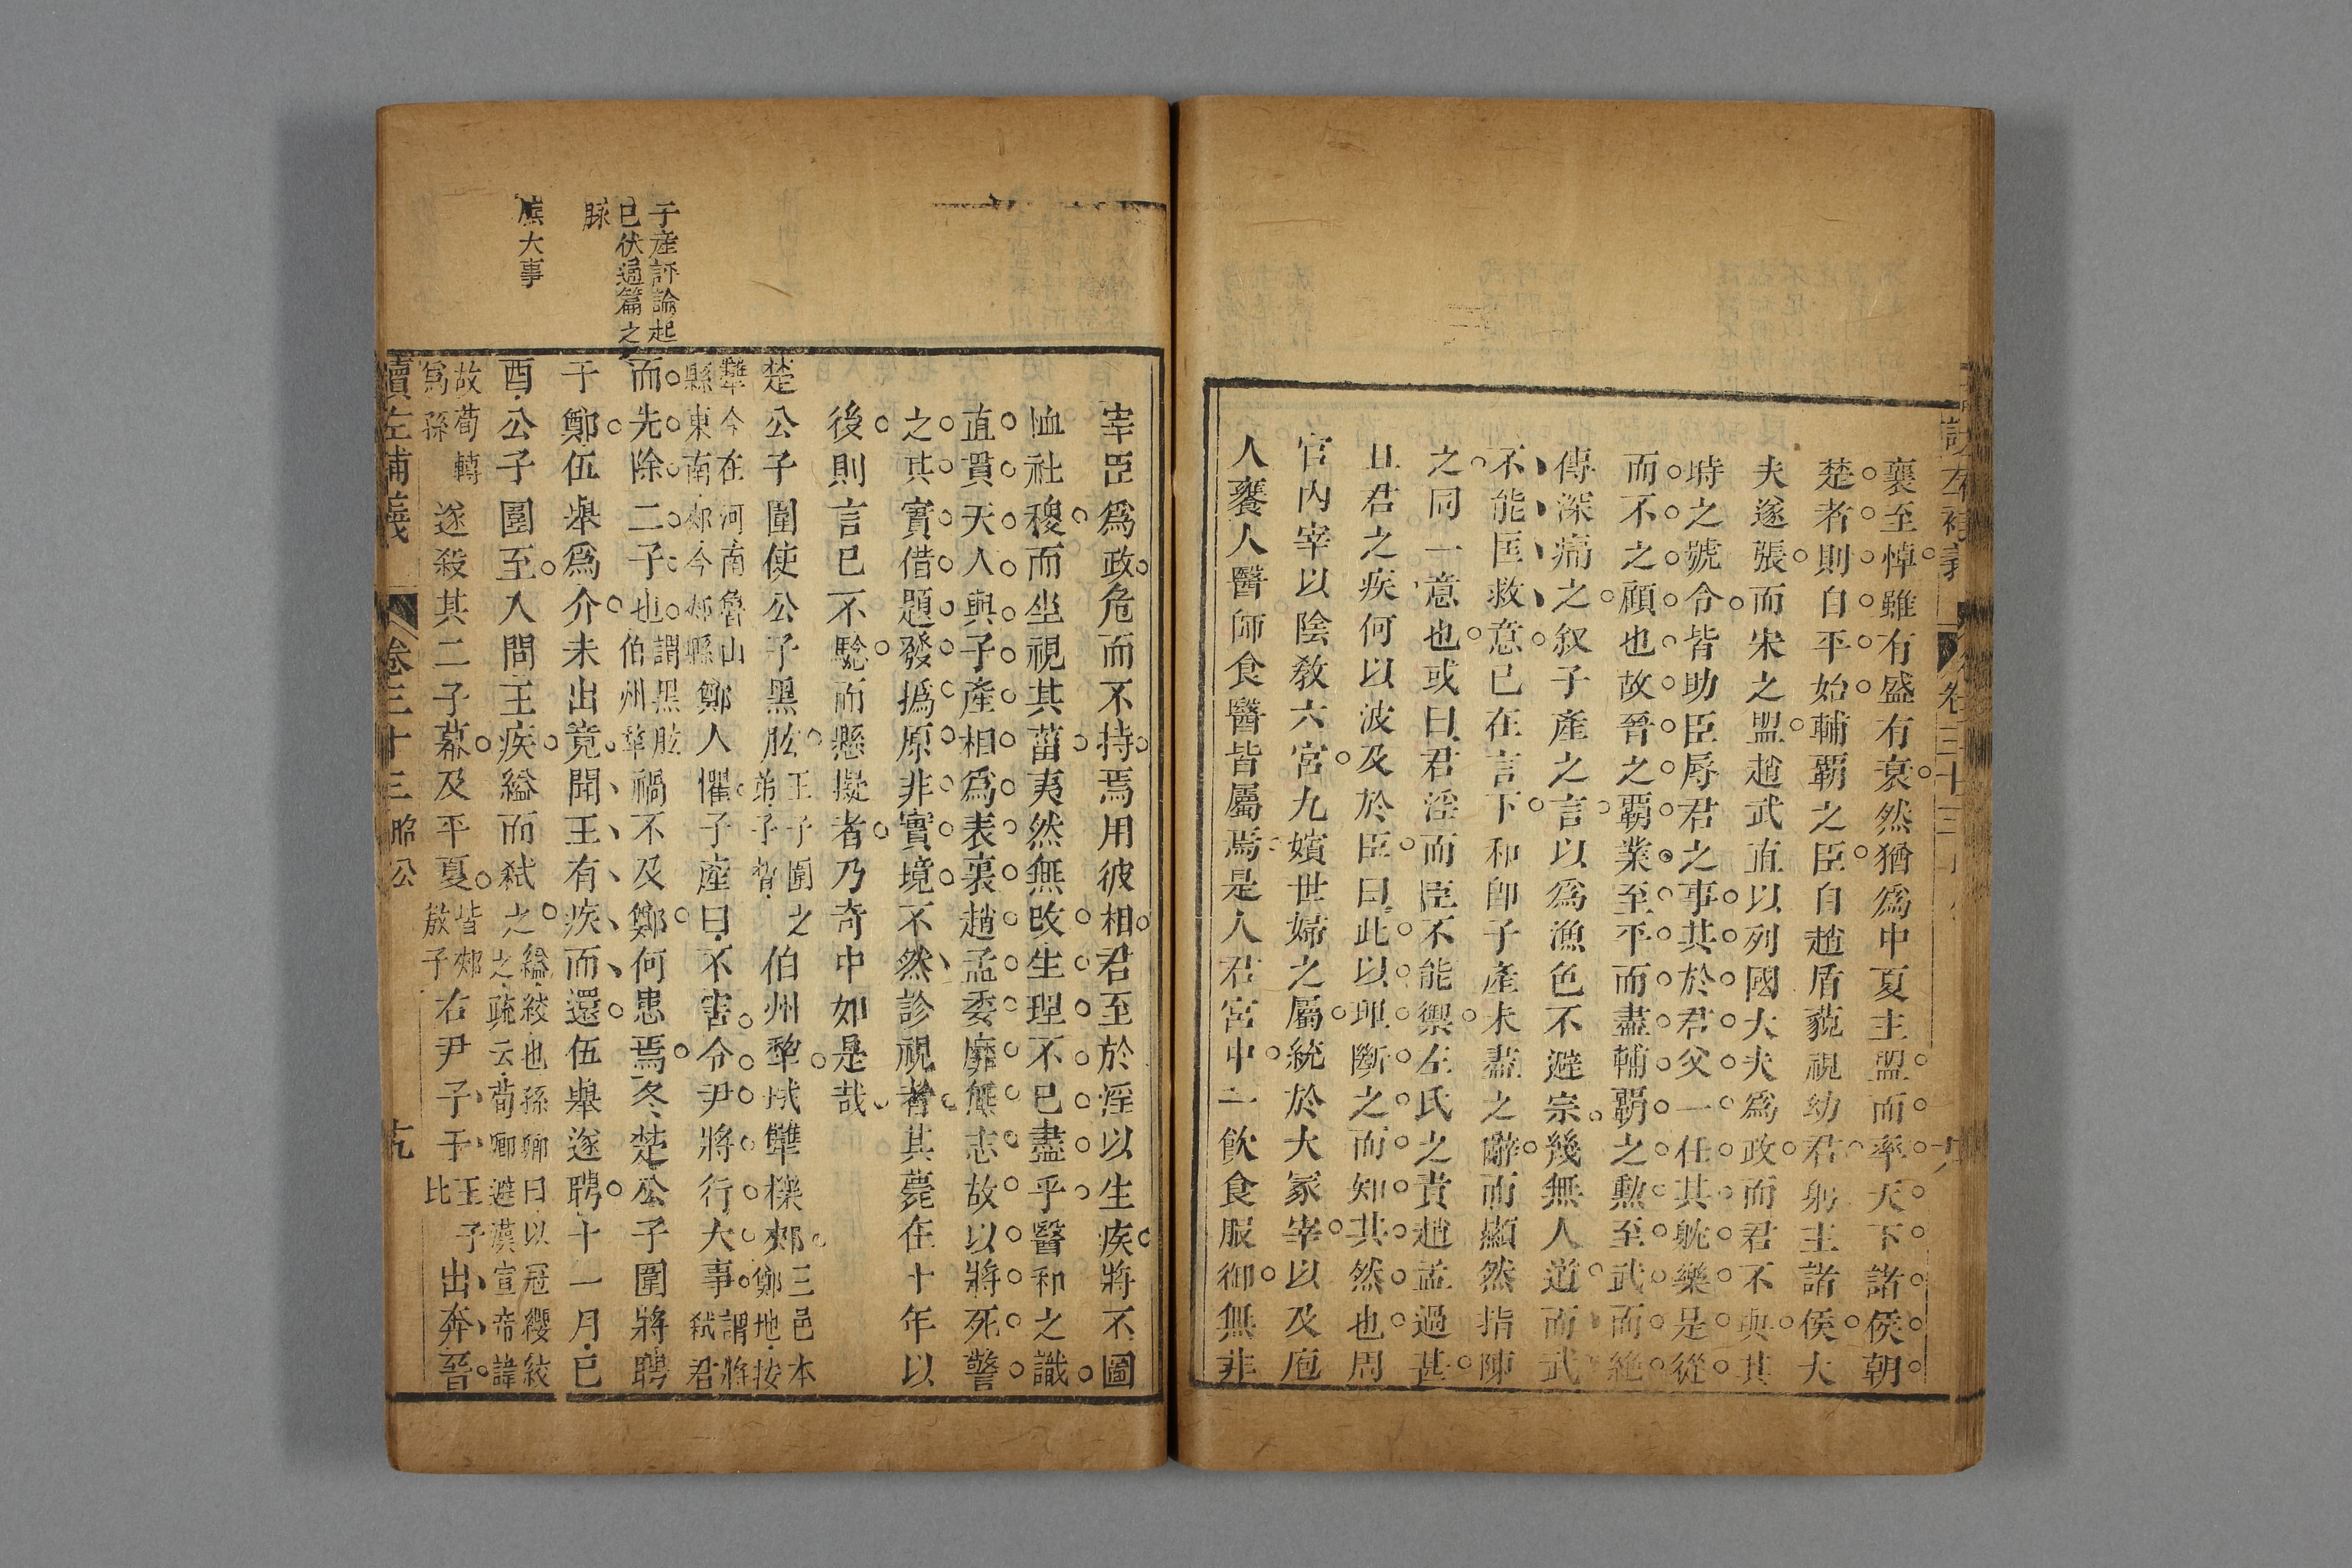 讀左補義 卷三十三 昭公
襄至悼雖有盛有衰然猶爲中夏主盟而率天下諸侯朝
楚者則自平始輔覇之臣自趙盾藐視幼君躬主諸侯大
夫遂張而宋之盟趙武直以列國大夫爲政而君不與其
時之號令皆助臣辱君之事其於君父一任其躭樂是從
而不之顧也故晉之覇業至平而盡輔覇之勲至武而絶
傳深痛之叙子產之言以爲漁色不避宗幾無人道而武
不能匡救意已在言下和卽子產未盡之辭而顯然指陳
之同一意也或曰君淫而臣不能禦左氏之責趙孟過甚
且君之疾何以波及於臣曰此以理斷之而知其然也周
官內宰以陰敎六宮九嬪世婦之屬統於大冢宰以及庖
人饔人醫師食醫皆屬焉是人君宮中一飲食服御無非
宰臣爲政危而不持焉用彼相君至於淫以生疾將不圖
恤社稷而坐視其菑夷然無改生理不已盡乎醫和之識
直貫天人與子產相爲表裏趙孟委靡無志故以將死警
之其實借題發撝原非實境不然診視者其薨在十年以
後則言已不驗而懸擬者乃奇中如是哉
楚公子圍使公子黑肱王子圍之弟子晳伯州犂城犨櫟郟三邑本鄭地按
犨今在河南魯山縣東南郟今郟縣鄭人懼子產曰不害令尹將行大事謂將弑君
而先除二子也謂黑肱伯州犂禍不及鄭何患焉冬楚公子圍將聘
于鄭伍舉爲介未出竟聞王有疾而還伍舉遂聘十一月己
酉公子圍至入問王疾縊而弑之縊絞也孫卿曰以冠纓絞之疏云荀卿避漢宣帝諱
故荀轉爲孫遂殺其二子幕及平夏皆郟敖子右尹子干王子比出奔晉
讀左補義 卷三十三 昭公
子產評論起
已伏通篇之
脉
大事